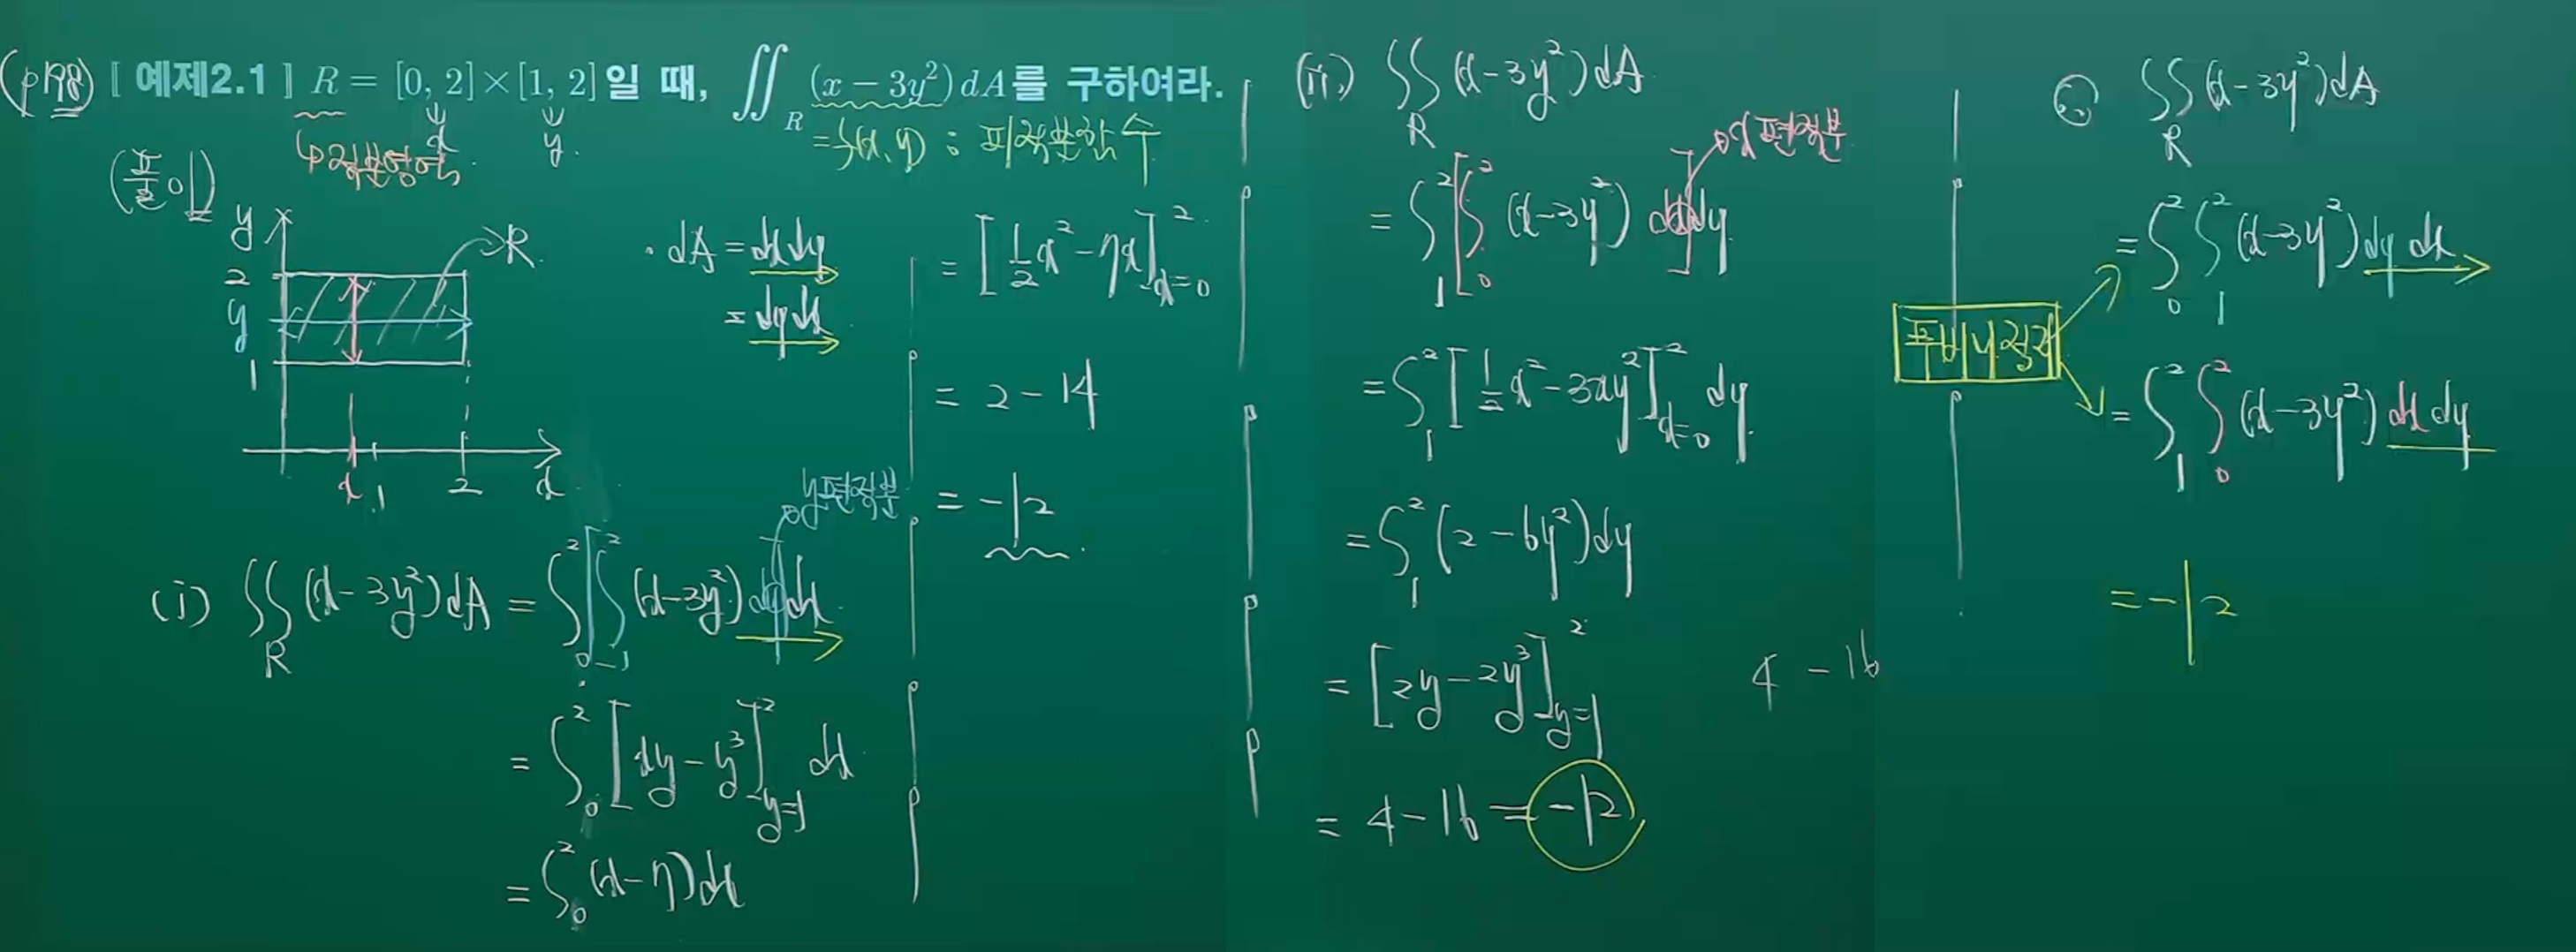 (p198) 〚 예제2.1 〛 R = [0, 2]×[1, 2]일 때, ∬_R (x − 3y²) dA를 구하여라.
x
y
↳ 적분영역
= f(x, y) : 피적분함수
(풀이)
y
2
y
1
x
1
2
x
R
· dA = dxdy
= dydx
(i) ∬_R (x−3y²)dA = ∫_0^2 [∫_1^2 (x−3y²) dy]dx
y편적분
= ∫_0^2 [xy − y³]_{y=1}^2 dx
= ∫_0^2 (x−7)dx
= [½x² − 7x]_{x=0}^2
= 2 − 14
= −12
(ii) ∬_R (x−3y²)dA
= ∫_1^2 [∫_0^2 (x−3y²) dx]dy
x편적분
= ∫_1^2 [½x² − 3xy²]_{x=0}^2 dy
= ∫_1^2 (2 − 6y²)dy
= [2y − 2y³]_{y=1}^2
4 − 16
= 4 − 16 = −12
∴ ∬_R (x−3y²)dA
= ∫_0^2 ∫_1^2 (x−3y²) dy dx
푸비니 정리
= ∫_1^2 ∫_0^2 (x−3y²) dx dy
= −12